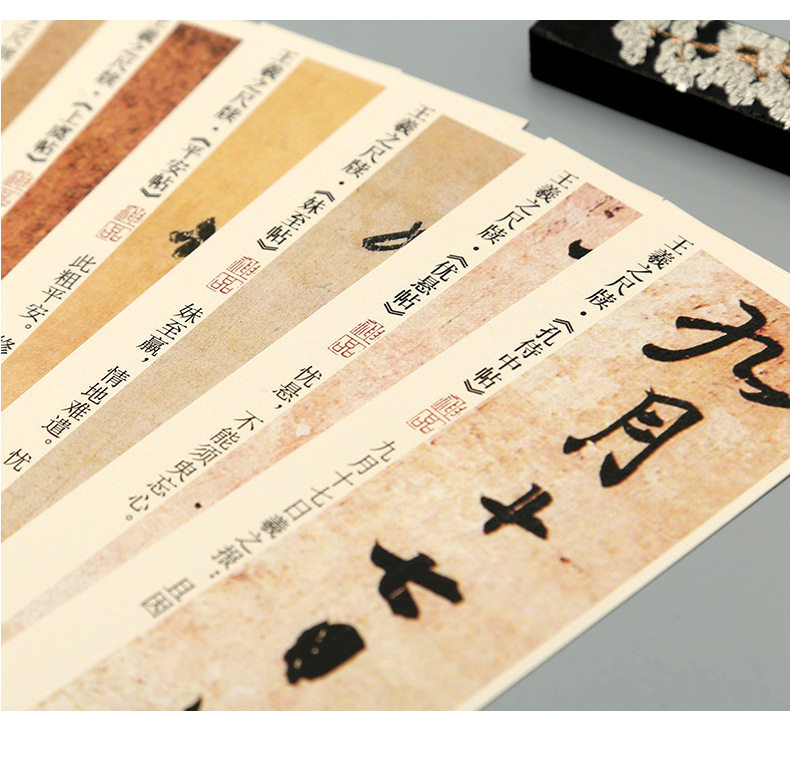 九月十七日
王羲之尺牍·《孔侍中帖》
禅品
九月十七日羲之报：且因
王羲之尺牍·《优悬帖》
禅品
忧悬，不能须臾忘心。
王羲之尺牍·《妹至帖》
禅品
妹至羸，情地难遣。忧
王羲之尺牍·《平安帖》
禅品
此粗平安。修
之尺牍·《上虞帖》